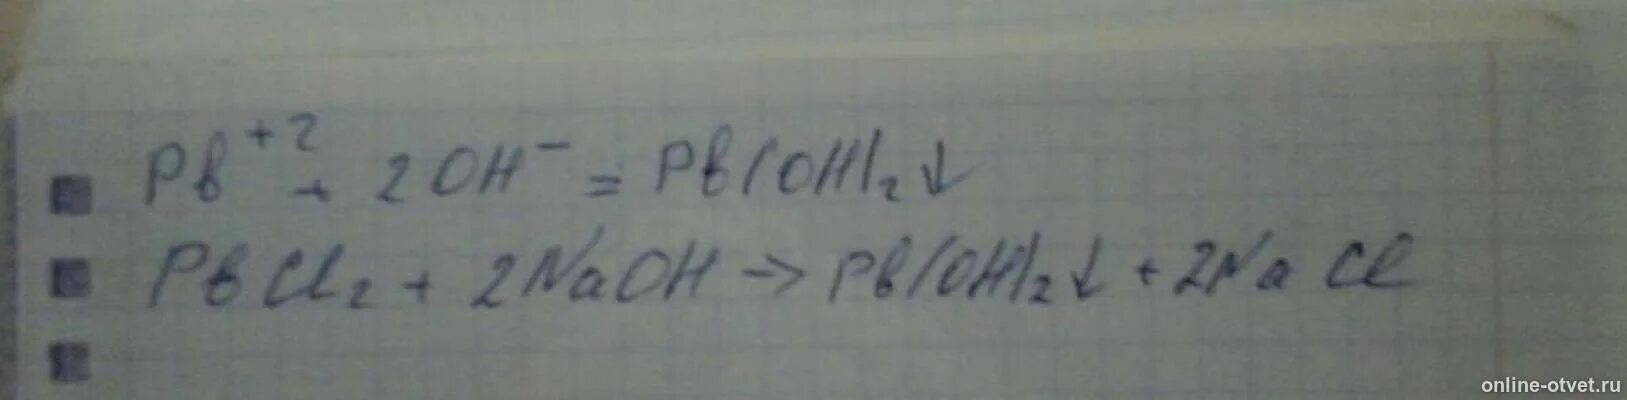 Pb⁺² + 2OH⁻ = Pb(OH)₂↓
PbCl₂ + 2NaOH → Pb(OH)₂↓ + 2NaCl
online-otvet.ru